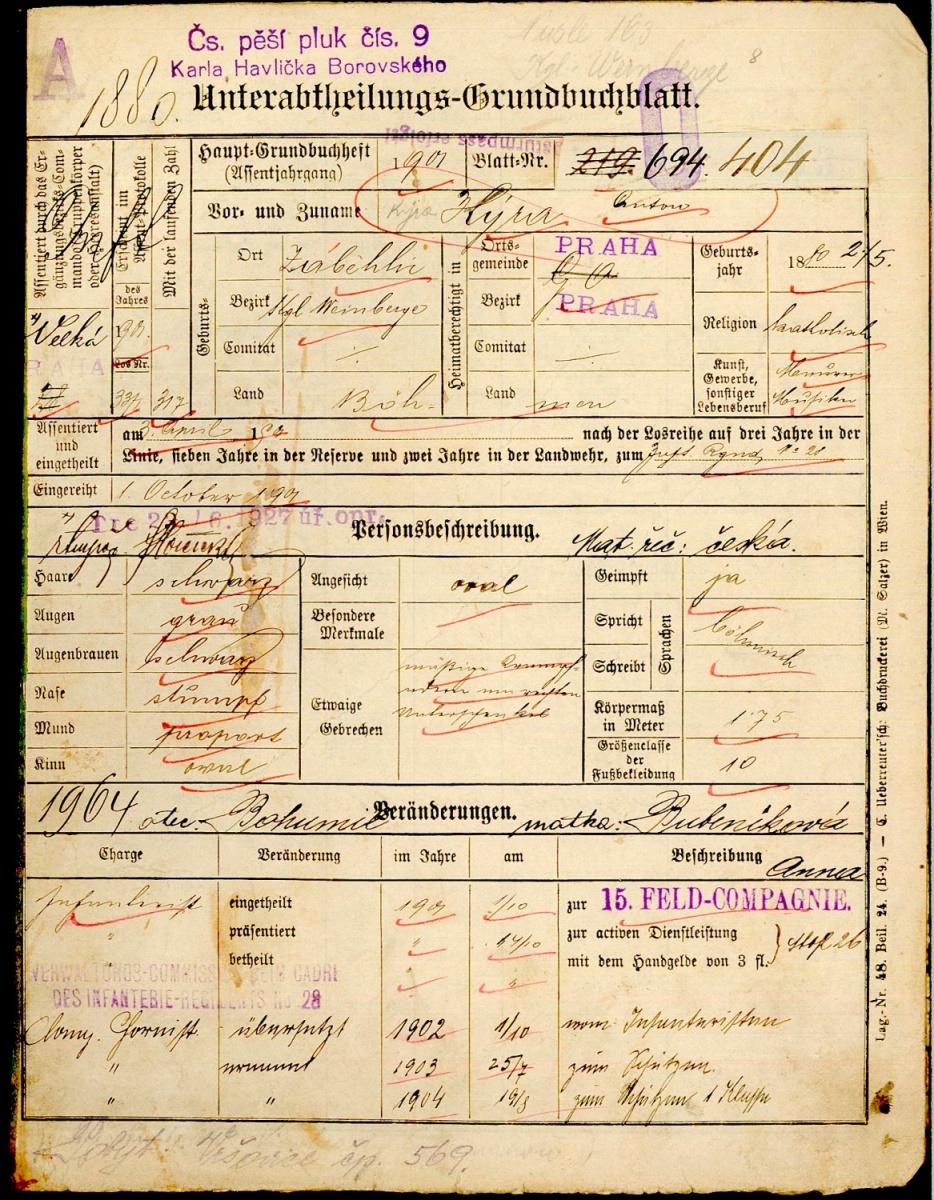 A
Čs. pěší pluk čís. 9
Karla Havlíčka Borovského
1880.
Unterabtheilungs-Grundbuchblatt.
Haupt-Grundbuchheft
(Assentjahrgang)
1901
Blatt-Nr.
219 694. 404
Vor- und Zuname
Kýra
Anton
Assentiert durch das Ergänzungsbezirks-Commando (Truppenkörper oder Heeresanstalt)
Erscheint im Assent-Protokolle
des Jahres
901
Mit der laufenden Zahl
Los Nr.
317
Velká
PRAHA
Geburts-
Ort
Záběhlic
Bezirk
Kgl Weinberge
Comitat
Land
Böh-
Heimatberechtigt in
Ortsgemeinde
PRAHA
Bezirk
PRAHA
Comitat
Land
men
Geburtsjahr
1880 2/5.
Religion
katholisch
Kunst, Gewerbe, sonstiger Lebensberuf
Maurer
Musiker
Assentiert und eingetheilt
am 3. April 190 nach der Losreihe auf drei Jahre in der
Linie, sieben Jahre in der Reserve und zwei Jahre in der Landwehr, zum Inft Rgmt No 28
Eingereiht
1. October 1901
Personsbeschreibung.
Mat. řeč: česká.
Haare
schwarz
Augen
grau
Augenbrauen
schwarz
Nase
stumpf
Mund
proport
Kinn
oval
Angesicht
oval
Besondere Merkmale
Etwaige Gebrechen
mäßige Krampfadern am rechten
Unterschenkel
Geimpft
ja
Spricht
Schreibt
Sprachen
böhmisch
Körpermaß in Meter
1·75
Größenclasse der Fußbekleidung
10
1964 otec: Bohumil
Veränderungen.
matka: Bubeníková
Anna
Charge
Veränderung
im Jahre
am
Beschreibung
Infanterist
eingetheilt
1901
1/10
zur 15. FELD-COMPAGNIE.
"
präsentiert
"
14/10
zur activen Dienstleistung
betheilt
"
"
mit dem Handgelde von 3 fl.
VERWALTUNGS-COMMISS BEIM CADRE
DES INFANTERIE-REGIMENTS No 28
Comp. Hornist
übersetzt
1902
1/10
vom Infanteristen
"
ernannt
1903
25/7
zum Schützen.
"
"
1904
19/8
zum Schützen 1 Klasse
Vršovice čp. 569.
Lag.-Nr. 48. Beil. 24. (B-9.) — C. Ueberreuter'sche Buchdruckerei (M. Salzer) in Wien.